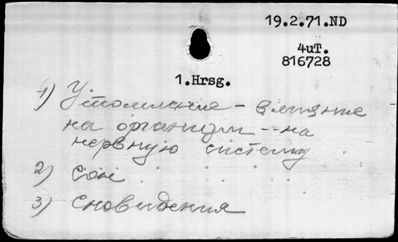 19.2.71.ND
4uT.
816728
1.Hrsg.
1) Утомление - влияние
на организм - на
нервную систему
2) Сон
3) Сновидения